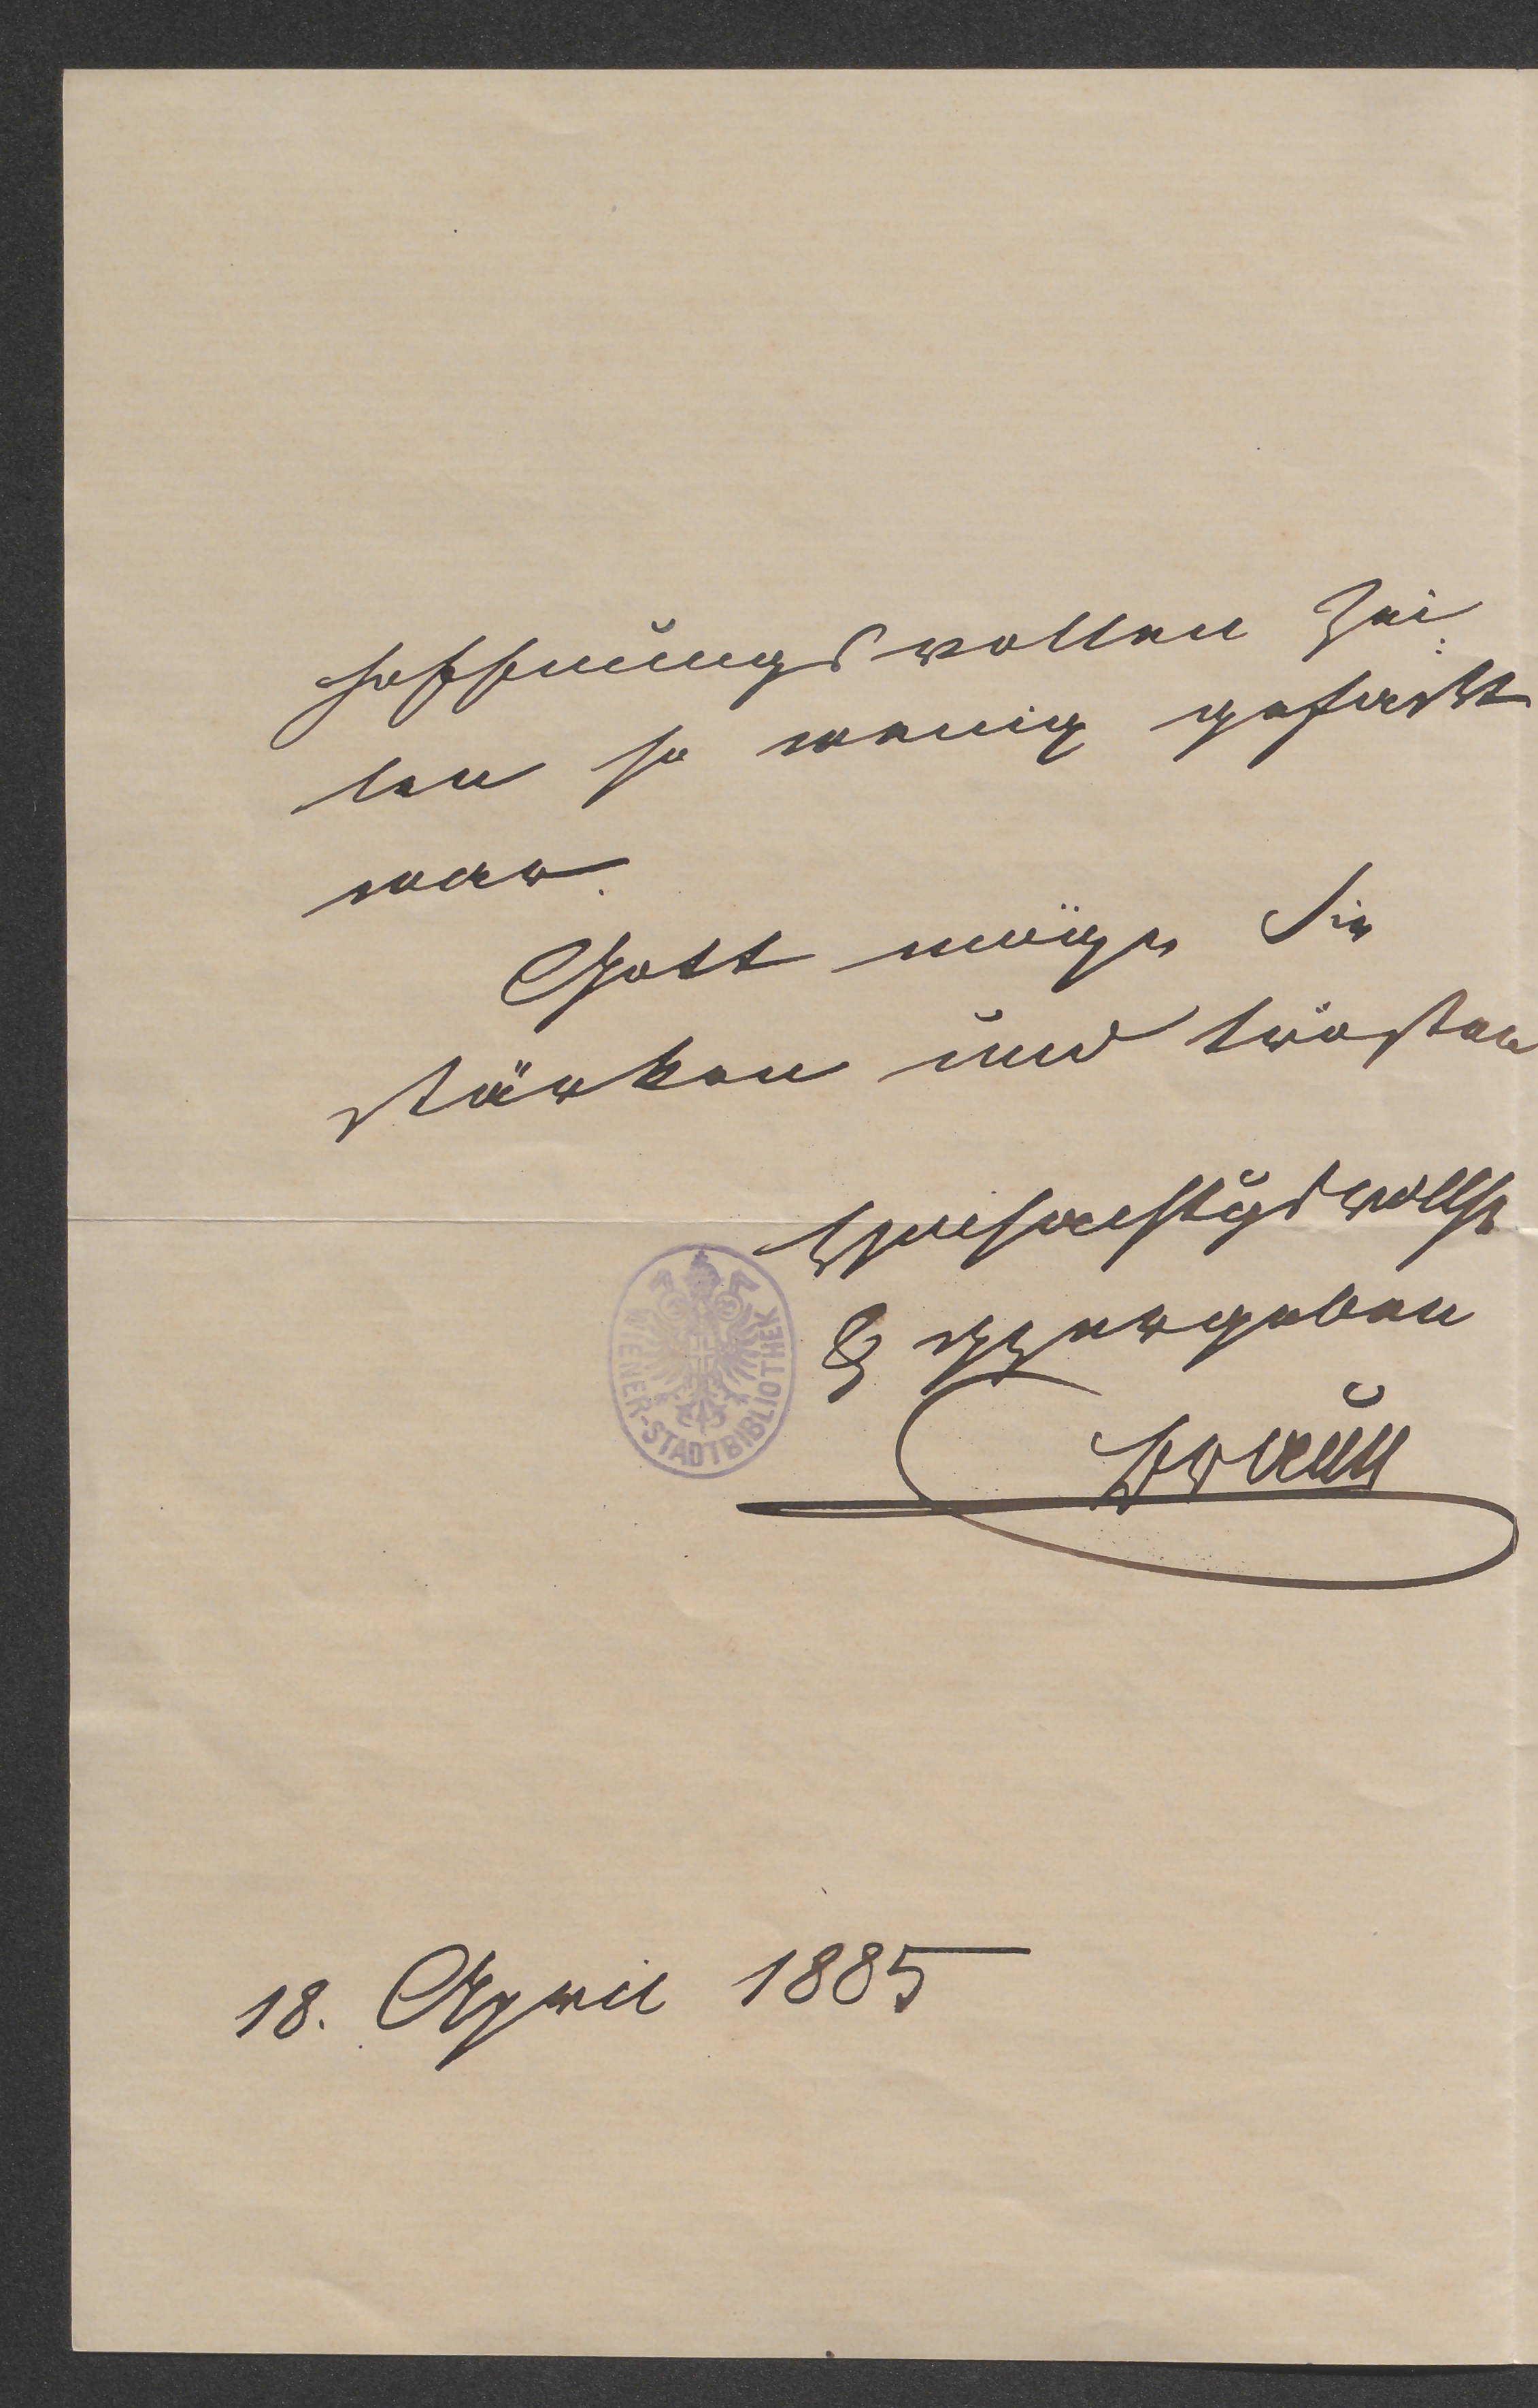 hoffnungsvollen Zei
len so wenig gefaßt
war.
Gott möge Sie
stärken und trösten
Hochachtungsvollst
& ergeben
Braun
WIENER-STADTBIBLIOTHEK
18. April 1885